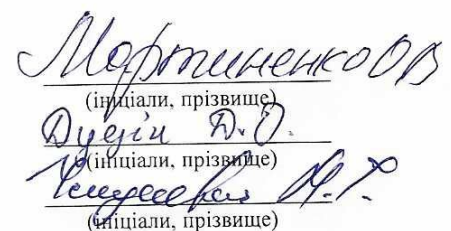 Мартиненко ОВ
(ініціали, прізвище)
Дудін Д.О.
(ініціали, прізвище)
(ініціали, прізвище)